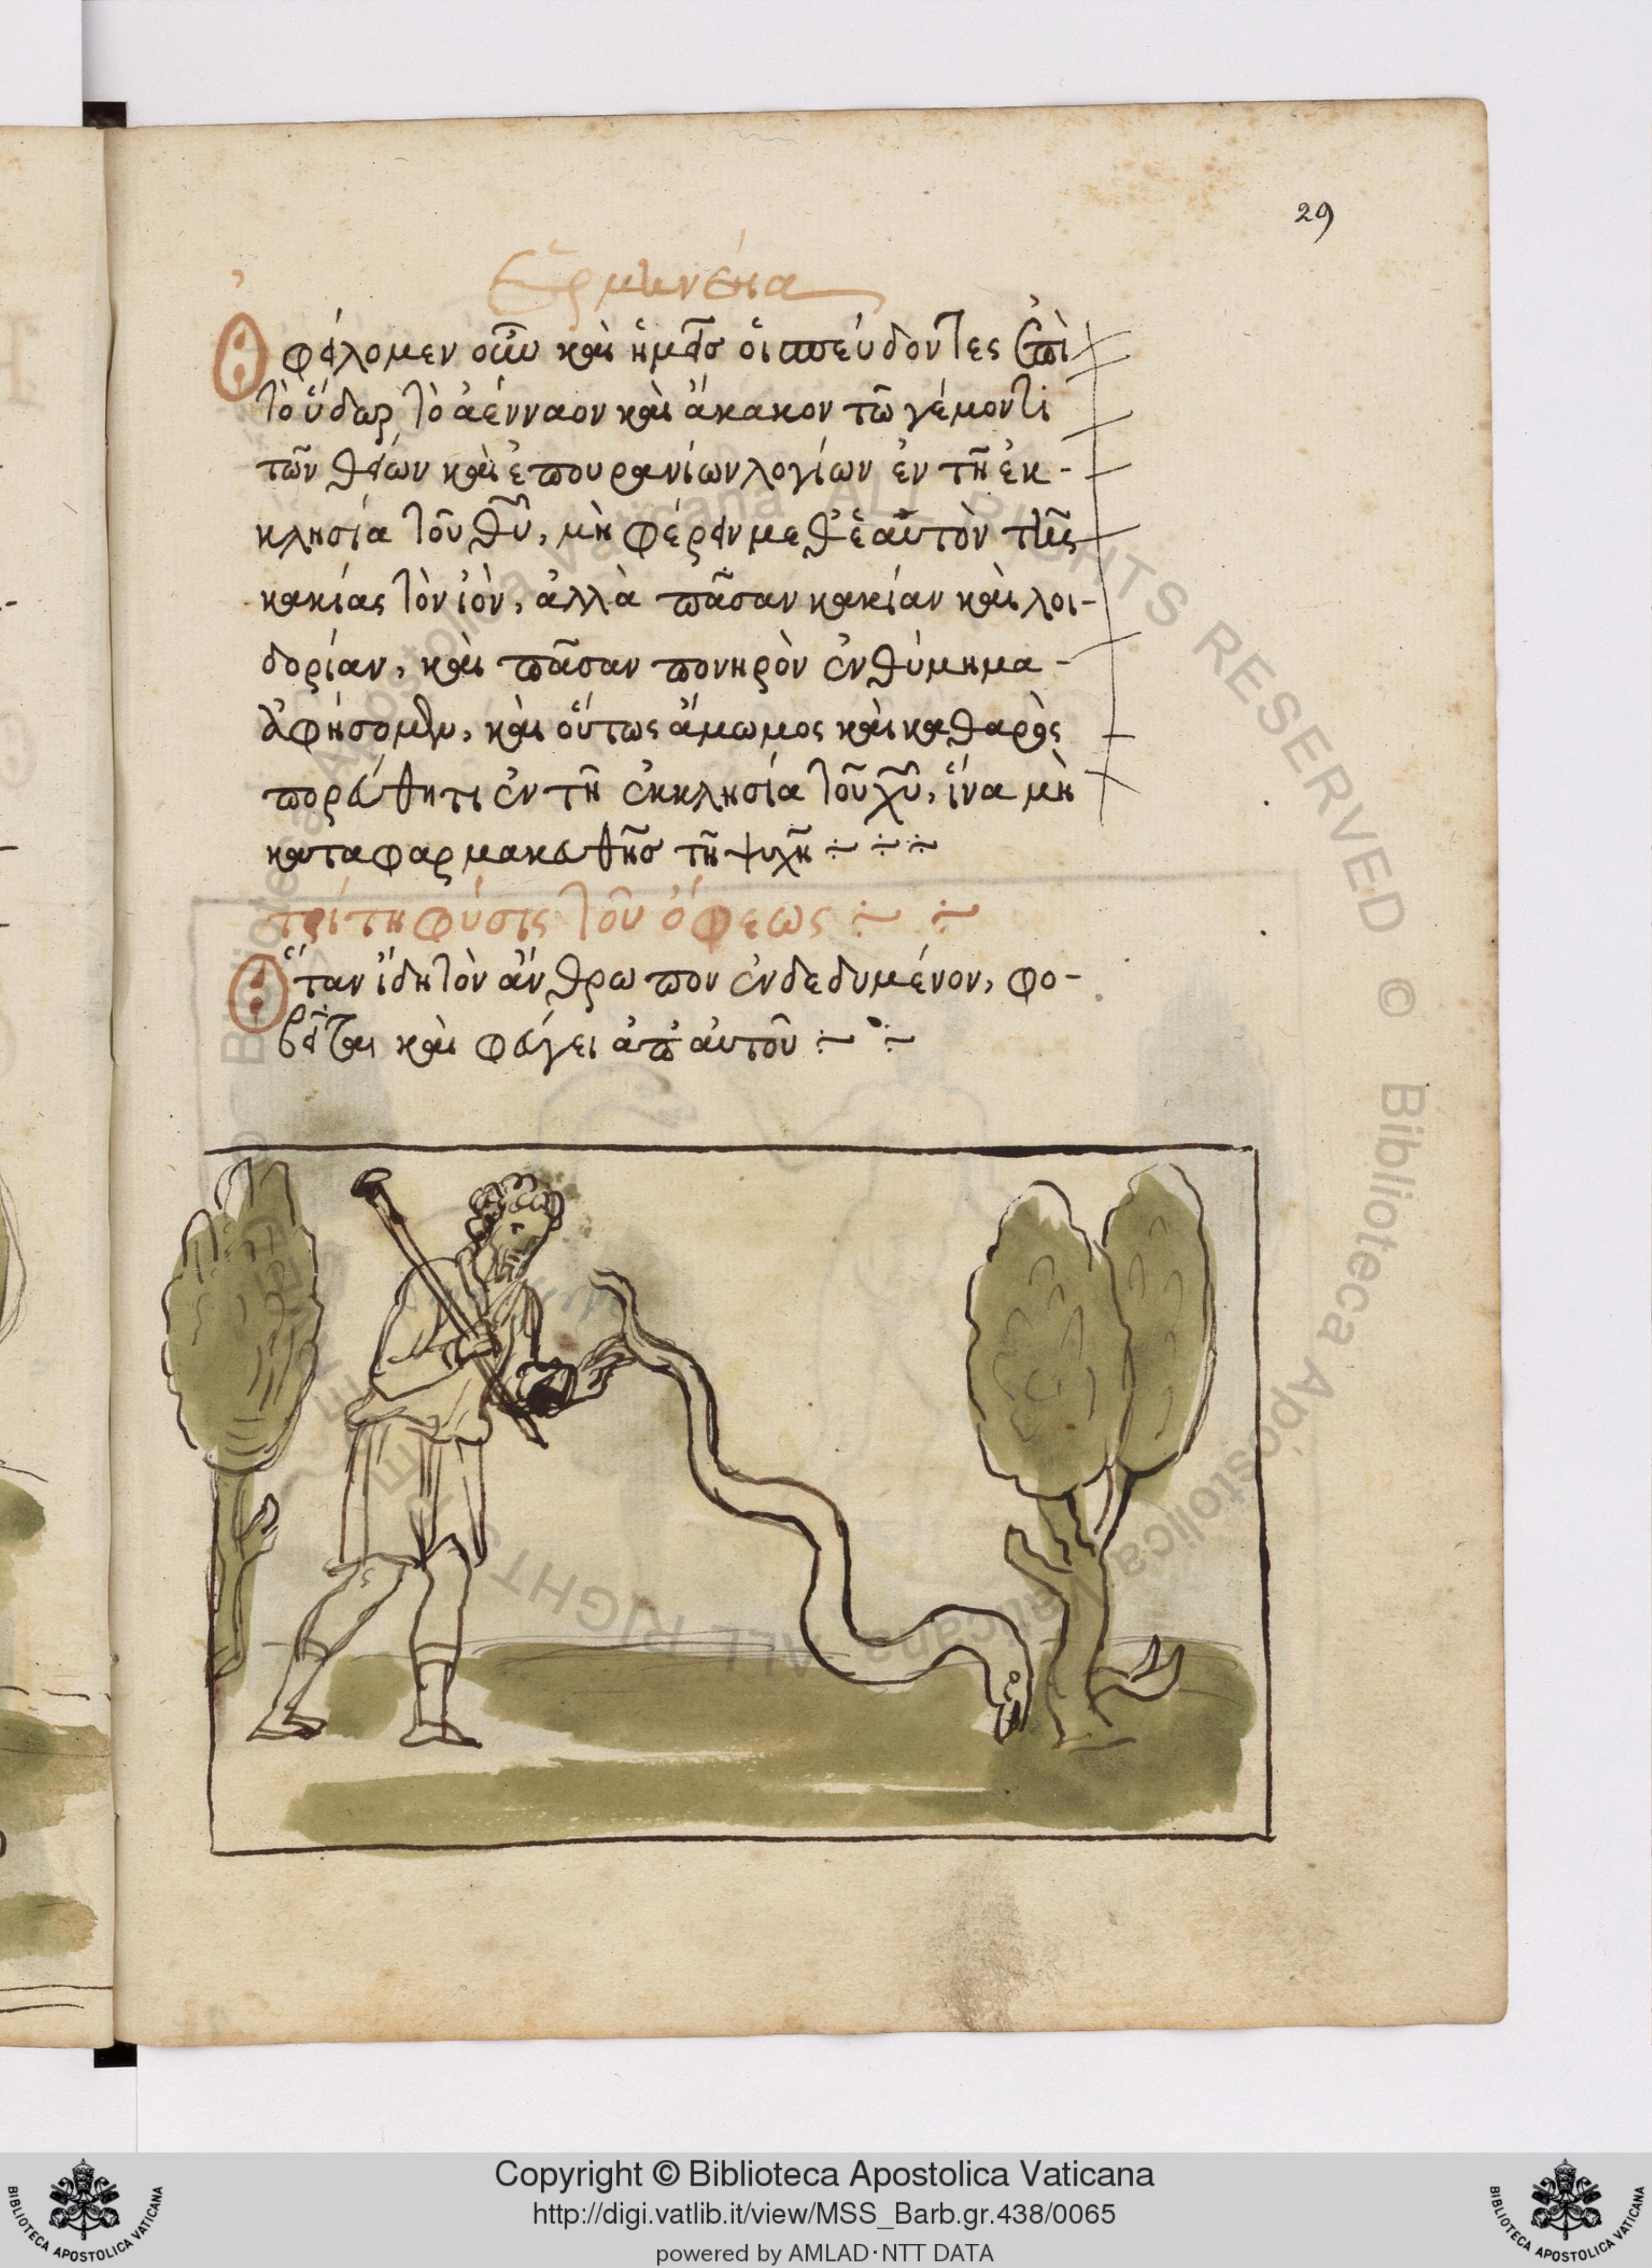 29
Ἑρμηνεία
Ὀφείλομεν οὖν καὶ ἡμεῖς οἱ σπεύδοντες ἐπὶ
τὸ ὕδωρ τὸ ἀένναον καὶ ἄκακον τῶ γέμοντι
τῶν θείων καὶ ἐπουρανίων λογίων ἐν τῆ ἐκ-
κλησία τοῦ θῦ, μὴ φέρειν μεθ' ἑαυτὸν τῆς
κακίας τὸν ἰὸν, ἀλλὰ πᾶσαν κακίαν καὶ λοι-
δορίαν, καὶ πᾶσαν πονηρὸν ἐνθύμημα
ἀφήσομεν, καὶ οὕτως ἄμωμος καὶ καθαρὸς
πορεύθητι ἐν τῆ ἐκκλησία τοῦ χῦ, ἵνα μὴ
καταφαρμακευθῆσ τῆ ψυχῆ
τρίτη φύσις τοῦ ὄφεως
Ὅταν ἴδη τὸν ἄνθρωπον ἐνδεδυμένον, φο-
βεῖται καὶ φεύγει ἀπ' ἀυτοῦ
Biblioteca Apostolica Vaticana ALL RIGHTS RESERVED ©
Biblioteca Apostolica Vaticana ALL RIGHTS RESERVED ©
Copyright © Biblioteca Apostolica Vaticana
http://digi.vatlib.it/view/MSS_Barb.gr.438/0065
powered by AMLAD·NTT DATA
BIBLIOTECA APOSTOLICA VATICANA
BIBLIOTECA APOSTOLICA VATICANA